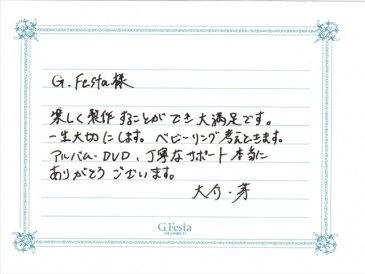 G. Festa 様
楽しく製作することができ大満足です。
一生大切にします。ベビーリング考えときます。
アルバム・DVD、丁寧なサポート本当に
ありがとうございます。
大介・芽
G.Festa